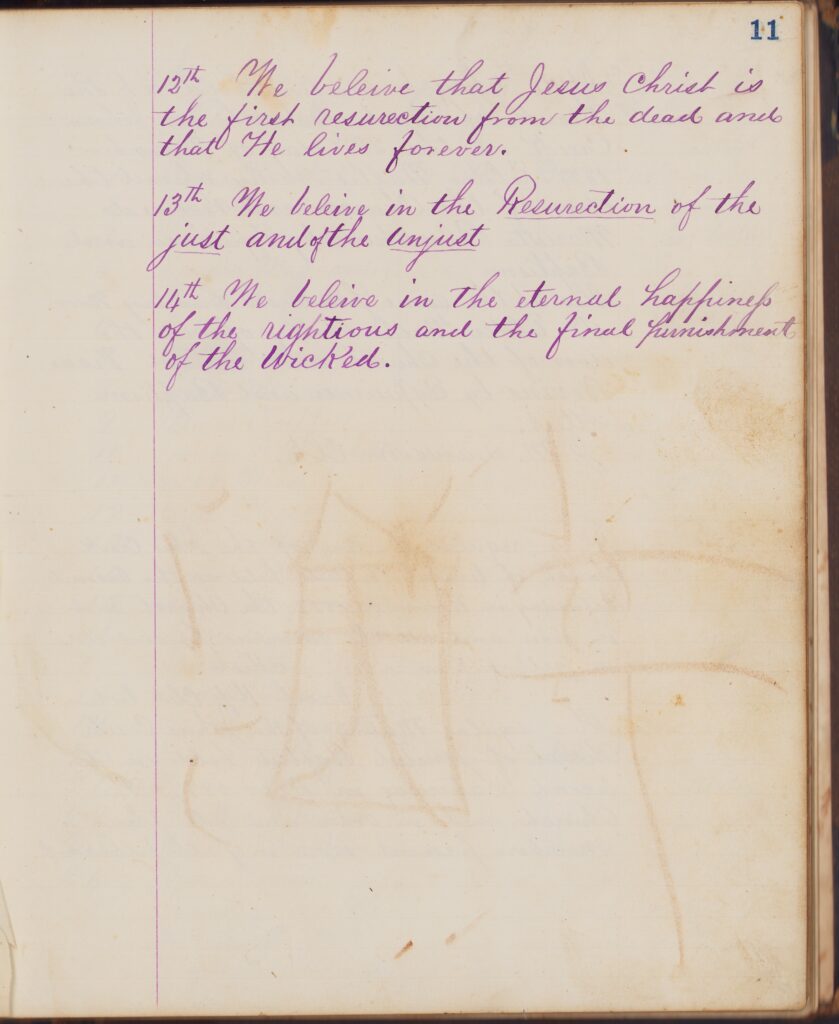 11
12th We beleive that Jesus Christ is
the first resurection from the dead and
that He lives forever.
13th We beleive in the Resurection of the
just and of the unjust
14th We beleive in the eternal happiness
of the rightious and the final punishment
of the Wicked.